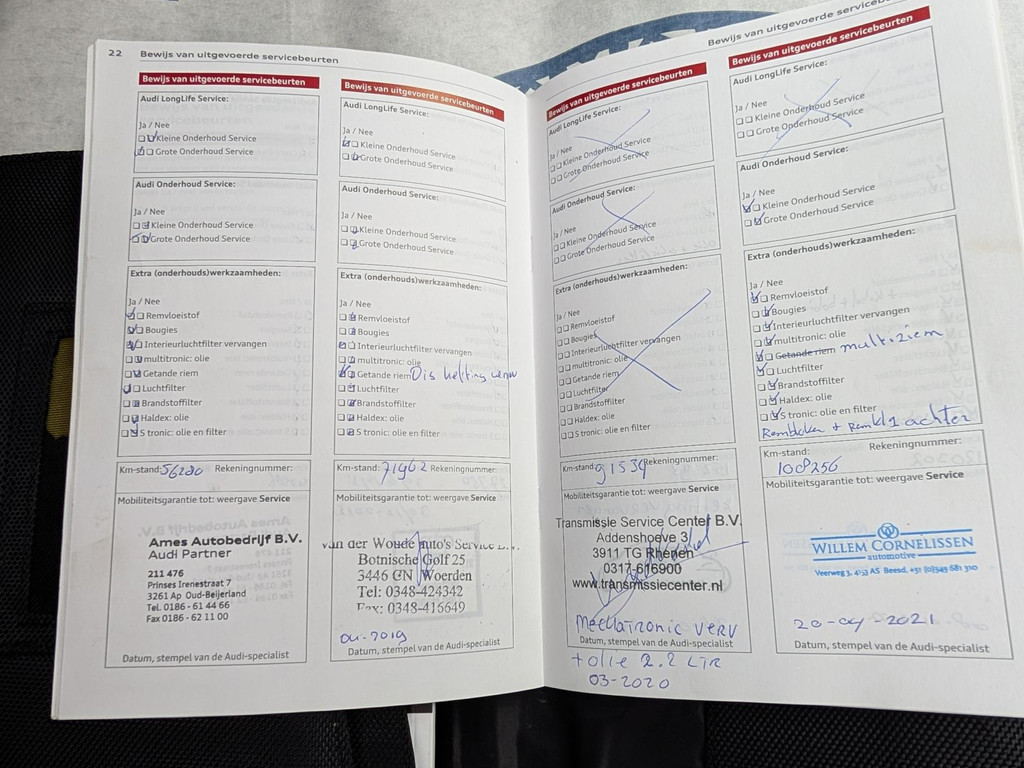 22 Bewijs van uitgevoerde servicebeurten
Bewijs van uitgevoerde servicebeurten
Audi LongLife Service:
Ja / Nee
Kleine Onderhoud Service
Grote Onderhoud Service
Audi Onderhoud Service:
Ja / Nee
Kleine Onderhoud Service
Grote Onderhoud Service
Extra (onderhouds)werkzaamheden:
Ja / Nee
Remvloeistof
Bougies
Interieurluchtfilter vervangen
multitronic: olie
Getande riem
Luchtfilter
Brandstoffilter
Haldex: olie
S tronic: olie en filter
Km-stand: 56280 Rekeningnummer:
Mobiliteitsgarantie tot: weergave Service
Ames Autobedrijf B.V.
Audi Partner
211 476
Prinses Irenestraat 7
3261 Ap Oud-Beijerland
Tel. 0186 - 61 44 66
Fax 0186 - 62 11 00
Datum, stempel van de Audi-specialist
Bewijs van uitgevoerde servicebeurten
Audi LongLife Service:
Ja / Nee
Kleine Onderhoud Service
Grote Onderhoud Service
Audi Onderhoud Service:
Ja / Nee
Kleine Onderhoud Service
Grote Onderhoud Service
Extra (onderhouds)werkzaamheden:
Ja / Nee
Remvloeistof
Bougies
Interieurluchtfilter vervangen
multitronic: olie
Getande riem
Luchtfilter
Brandstoffilter
Haldex: olie
S tronic: olie en filter
Km-stand: 71962 Rekeningnummer:
Mobiliteitsgarantie tot: weergave Service
van der Woude auto's Service B.V.
Botnische Golf 25
3446 CN Woerden
Tel: 0348-424342
Fax: 0348-416649
04-2019
Datum, stempel van de Audi-specialist
Bewijs van uitgevoerde servicebeurten
Audi LongLife Service:
Ja / Nee
Kleine Onderhoud Service
Grote Onderhoud Service
Audi Onderhoud Service:
Ja / Nee
Kleine Onderhoud Service
Grote Onderhoud Service
Extra (onderhouds)werkzaamheden:
Ja / Nee
Remvloeistof
Bougies
Interieurluchtfilter vervangen
multitronic: olie
Getande riem
Luchtfilter
Brandstoffilter
Haldex: olie
S tronic: olie en filter
Km-stand: 91534 Rekeningnummer:
Mobiliteitsgarantie tot: weergave Service
Transmissie Service Center B.V.
Addenshoeve 3
3911 TG Rhenen
0317-616900
www.transmissiecenter.nl
mechatronic verv
Datum, stempel van de Audi-specialist
+ olie 2.2 LTR
03-2020
Bewijs van uitgevoerde servicebeurten
Bewijs van uitgevoerde servicebeurten
Audi LongLife Service:
Ja / Nee
Kleine Onderhoud Service
Grote Onderhoud Service
Audi Onderhoud Service:
Ja / Nee
Kleine Onderhoud Service
Grote Onderhoud Service
Extra (onderhouds)werkzaamheden:
Ja / Nee
Remvloeistof
Bougies
Interieurluchtfilter vervangen
multitronic: olie
Getande riem multiriem
Luchtfilter
Brandstoffilter
Haldex: olie
S tronic: olie en filter
achter
Km-stand: 108256 Rekeningnummer:
Mobiliteitsgarantie tot: weergave Service
WILLEM CORNELISSEN
automotive
Veerweg 3, 4153 AS Beesd, +31 (0)345 681 310
20-04-2021
Datum, stempel van de Audi-specialist